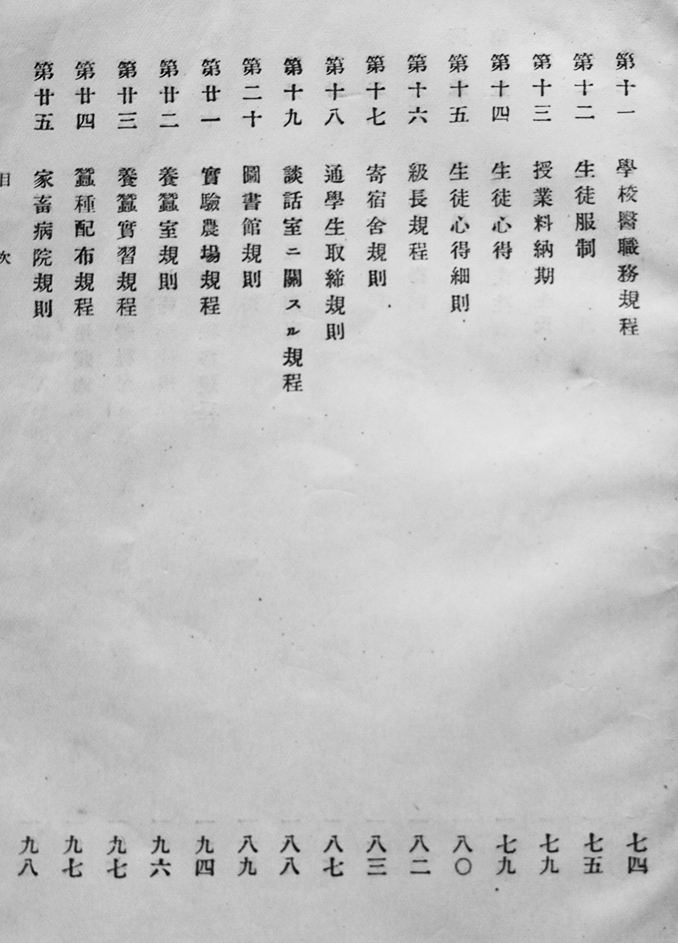 第十一 學校醫職務規程 七四
第十二 生徒服制 七五
第十三 授業料納期 七九
第十四 生徒心得 七九
第十五 生徒心得細則 八〇
第十六 級長規程 八二
第十七 寄宿舍規則 八三
第十八 通學生取締規則 八七
第十九 談話室ニ關スル規程 八八
第二十 圖書館規則 八九
第廿一 實驗農場規程 九四
第廿二 養蠶室規則 九六
第廿三 養蠶實習規程 九七
第廿四 蠶種配布規程 九七
第廿五 家畜病院規則 九八
目次